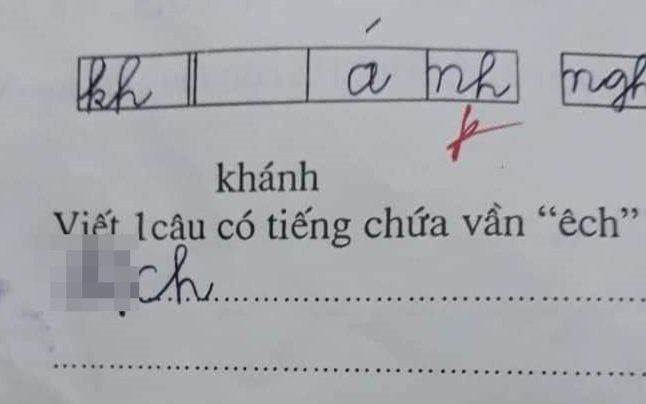 kh á nh ngh
khánh
Viết 1câu có tiếng chứa vần “êch”
ch